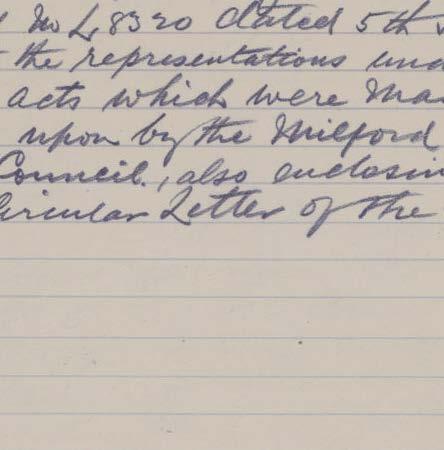 No L8320 dated 5th
the representations und
acts which were Ma
upon by the Milford
Council, also enclosin
Circular Letter of the